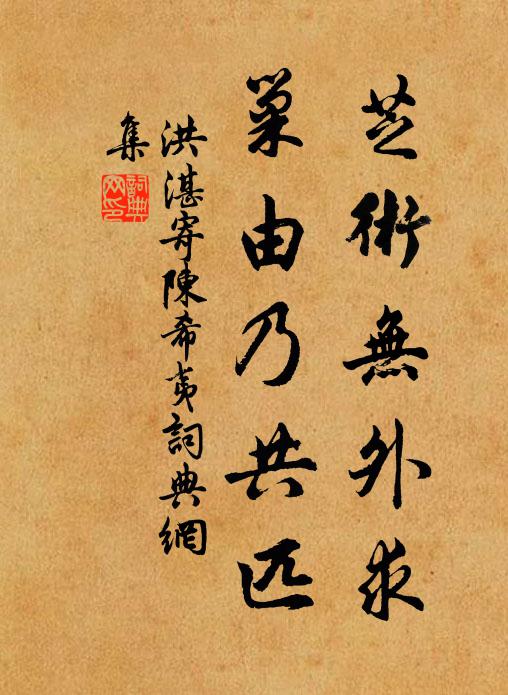 芝術無外求
巢由乃共匹
洪湛寄陳希夷詞典網
集
詞典
网印